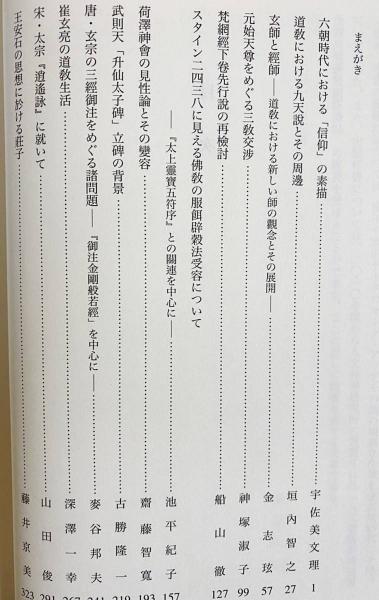 まえがき
六朝時代における「信仰」の素描…宇佐美文理 1
道教における九天說とその周邊…垣內智之 27
玄師と經師——道教における新しい師の觀念とその展開——…金志玹 57
元始天尊をめぐる三教交涉…神塚淑子 99
梵網經下卷先行說の再檢討…船山徹 127
スタイン二四三八に見える佛教の服餌辟穀法受容について
——『太上靈寶五符序』との關連を中心に——…池平紀子 157
荷澤神會の見性論とその變容…齋藤智寬 193
武則天「升仙太子碑」立碑の背景…古勝隆一 219
唐・玄宗の三經御注をめぐる諸問題——『御注金剛般若經』を中心に——…麥谷邦夫 241
崔玄亮の道敎生活…深澤一幸 267
宋・太宗『逍遙詠』に就いて…山田俊 291
王安石の思想に於ける莊子…藤井京美 323